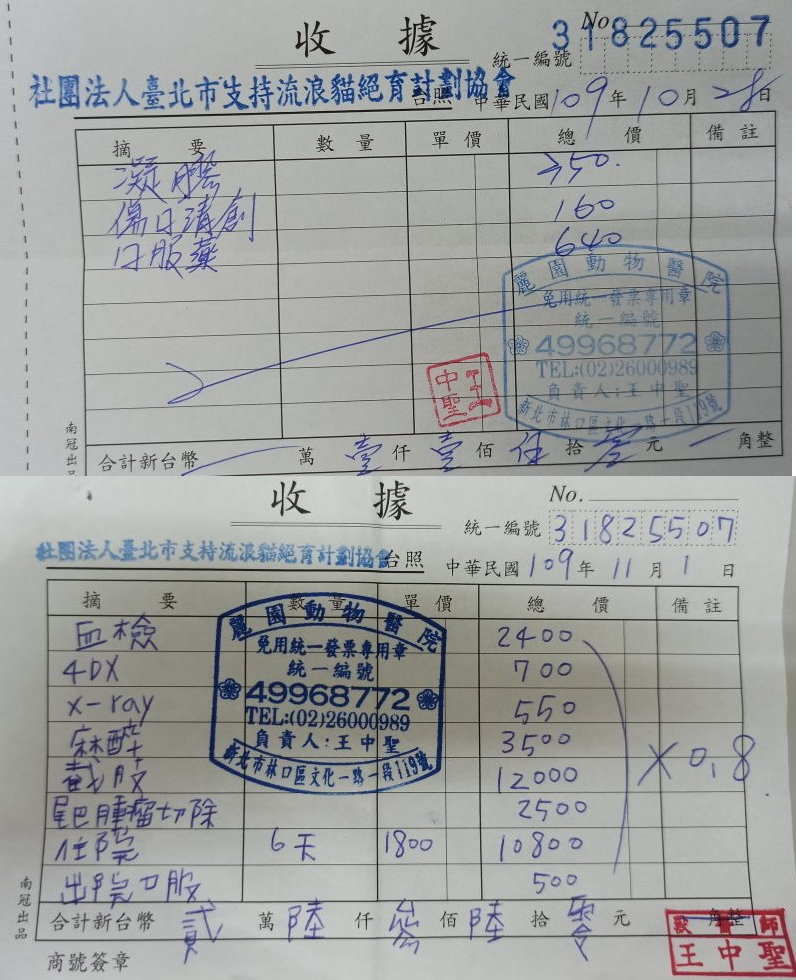 收據
No 31825507
統一編號
社團法人臺北市支持流浪貓絕育計劃協會
台照 中華民國109年10月28日
摘要 數量 單價 總價 備註
凝膠 350.
傷口清創 160
口服藥 640
麗園動物醫院
免用統一發票專用章
統一編號
49968772
TEL:(02)26000989
負責人:王中聖
新北市林口區文化一路一段119號
王中聖
合計新台幣 萬 壹仟壹佰伍拾零元 角整
南冠出品
收據
No.
統一編號 31825507
社團法人臺北市支持流浪貓絕育計劃協會 台照 中華民國109年11月1日
摘要 數量 單價 總價 備註
血檢 2400
4DX 700
x-ray 550
麻醉 3500
截肢 12000
尾巴腫瘤切除 2500
住院 6天 1800 10800
出院口服 500
×0.8
麗園動物醫院
免用統一發票專用章
統一編號
49968772
TEL:(02)26000989
負責人:王中聖
新北市林口區文化一路一段119號
合計新台幣 貳萬陸仟 佰陸拾零元 角整
獸醫師
王中聖
南冠出品
商號簽章